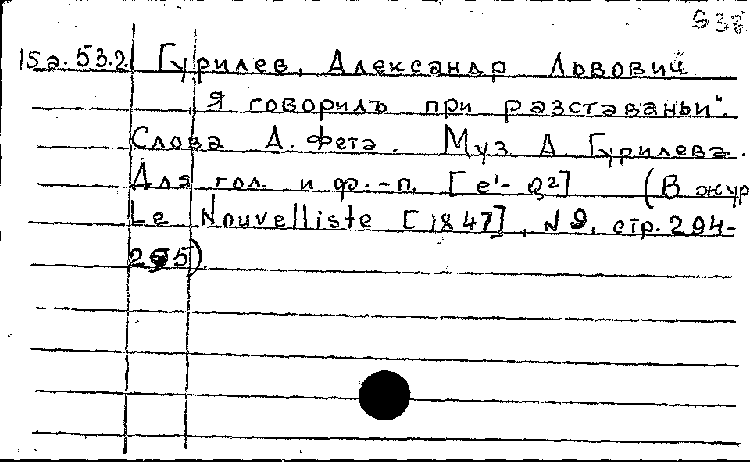 938
15а.53.2. Гурилев, Александр Львовий
Я говорилъ при разставаньи".
Слова А. Фета. Муз А Гурилева.
Для гол. и ф.-п. [e'- g²] (В жур
Le Nouvelliste [1847], N 9, стр. 294-
295)